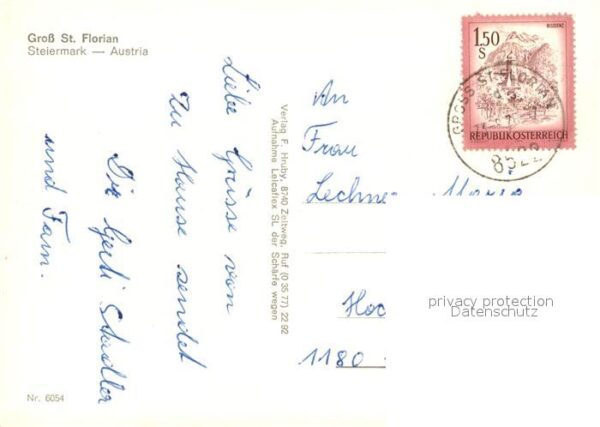 Groß St. Florian
Steiermark — Austria
Liebe Grüsse von
zu Hause sendet
Dir Gerti Stadler
und Fam.
Nr. 6054
Verlag F. Hruby, 8740 Zeltweg, Ruf (0 35 77) 22 92
Aufnahme Leicaflex SL der Schärfe wegen
1.50
S
BLUDENZ
REPUBLIK ÖSTERREICH
GROSS ST. FLORIAN
8522
An
Frau
Lechner Maria
Hoc
1180
privacy protection
Datenschutz